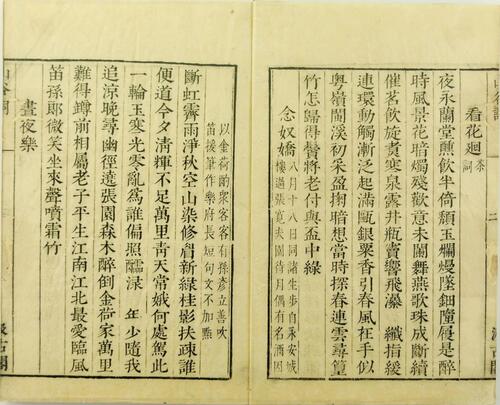 看花廻 茶詞
夜永蘭堂醼飲半倚頹玉爛熳墜鈿墮履是醉
時風景花暗燭殘歡意未闌舞燕歌珠成斷續
催茗飲旋煮寒泉露井瓶竇響飛瀑 纖指緩
連環動觸漸泛起滿甌銀粟香引春風在手似
粤嶺閩溪初采盈掬暗想當時探春連雲尋篁
竹怎歸得鬢將老付與盃中綠
念奴嬌 八月十八日同諸生步自永安城
樓過張寬夫園待月偶有名酒因
以金荷酌衆客客有孫彦立善吹
笛援筆作樂府長短句文不加㸃
斷虹霽雨淨秋空山染修睂新綠桂影扶疎誰
便道今夕淸輝不足萬里靑天常娥何處駕此
一輪玉寒光零亂爲誰偏照醽渌 年少隨我
追涼晚尋幽徑遶張園森木醉倒金荷家萬里
難得罇前相屬老子平生江南江北最愛臨風
笛孫郎微笑坐來聲噴霜竹
晝夜樂